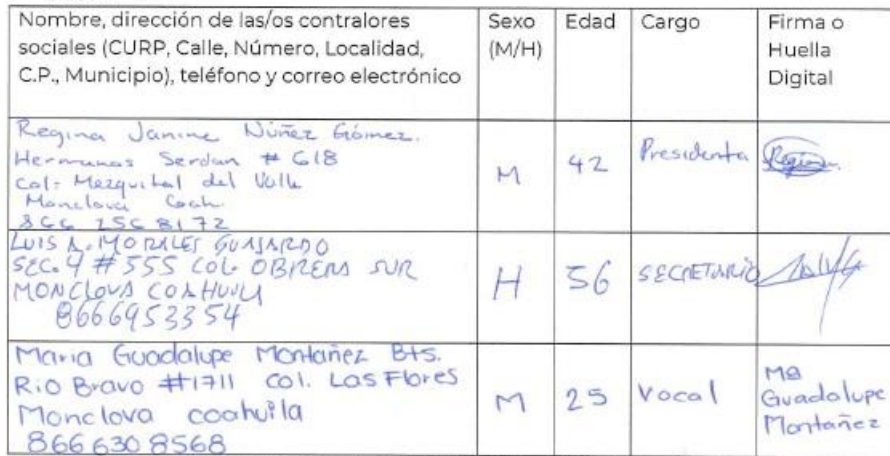 Nombre, dirección de las/os contralores
sociales (CURP, Calle, Número, Localidad,
C.P., Municipio), teléfono y correo electrónico
Sexo
(M/H)
Edad
Cargo
Firma o
Huella
Digital
Regina Janine Núñez Gómez.
Hermanas Serdan # 618
Col: Mezquital del Valle
Monclova Coah.
866 256 8172
M
42
Presidenta
Regina
LUIS A. MORALES GUAJARDO
SEC. 4 # 555 COL. OBRERA SUR
MONCLOVA COAHUILA
8666953354
H
56
SECRETARIO
Maria Guadalupe Montañez Bts.
Rio Bravo #1711 Col. Las Flores
Monclova coahuila
866 630 8568
M
25
Vocal
Ma
Guadalupe
Montañez